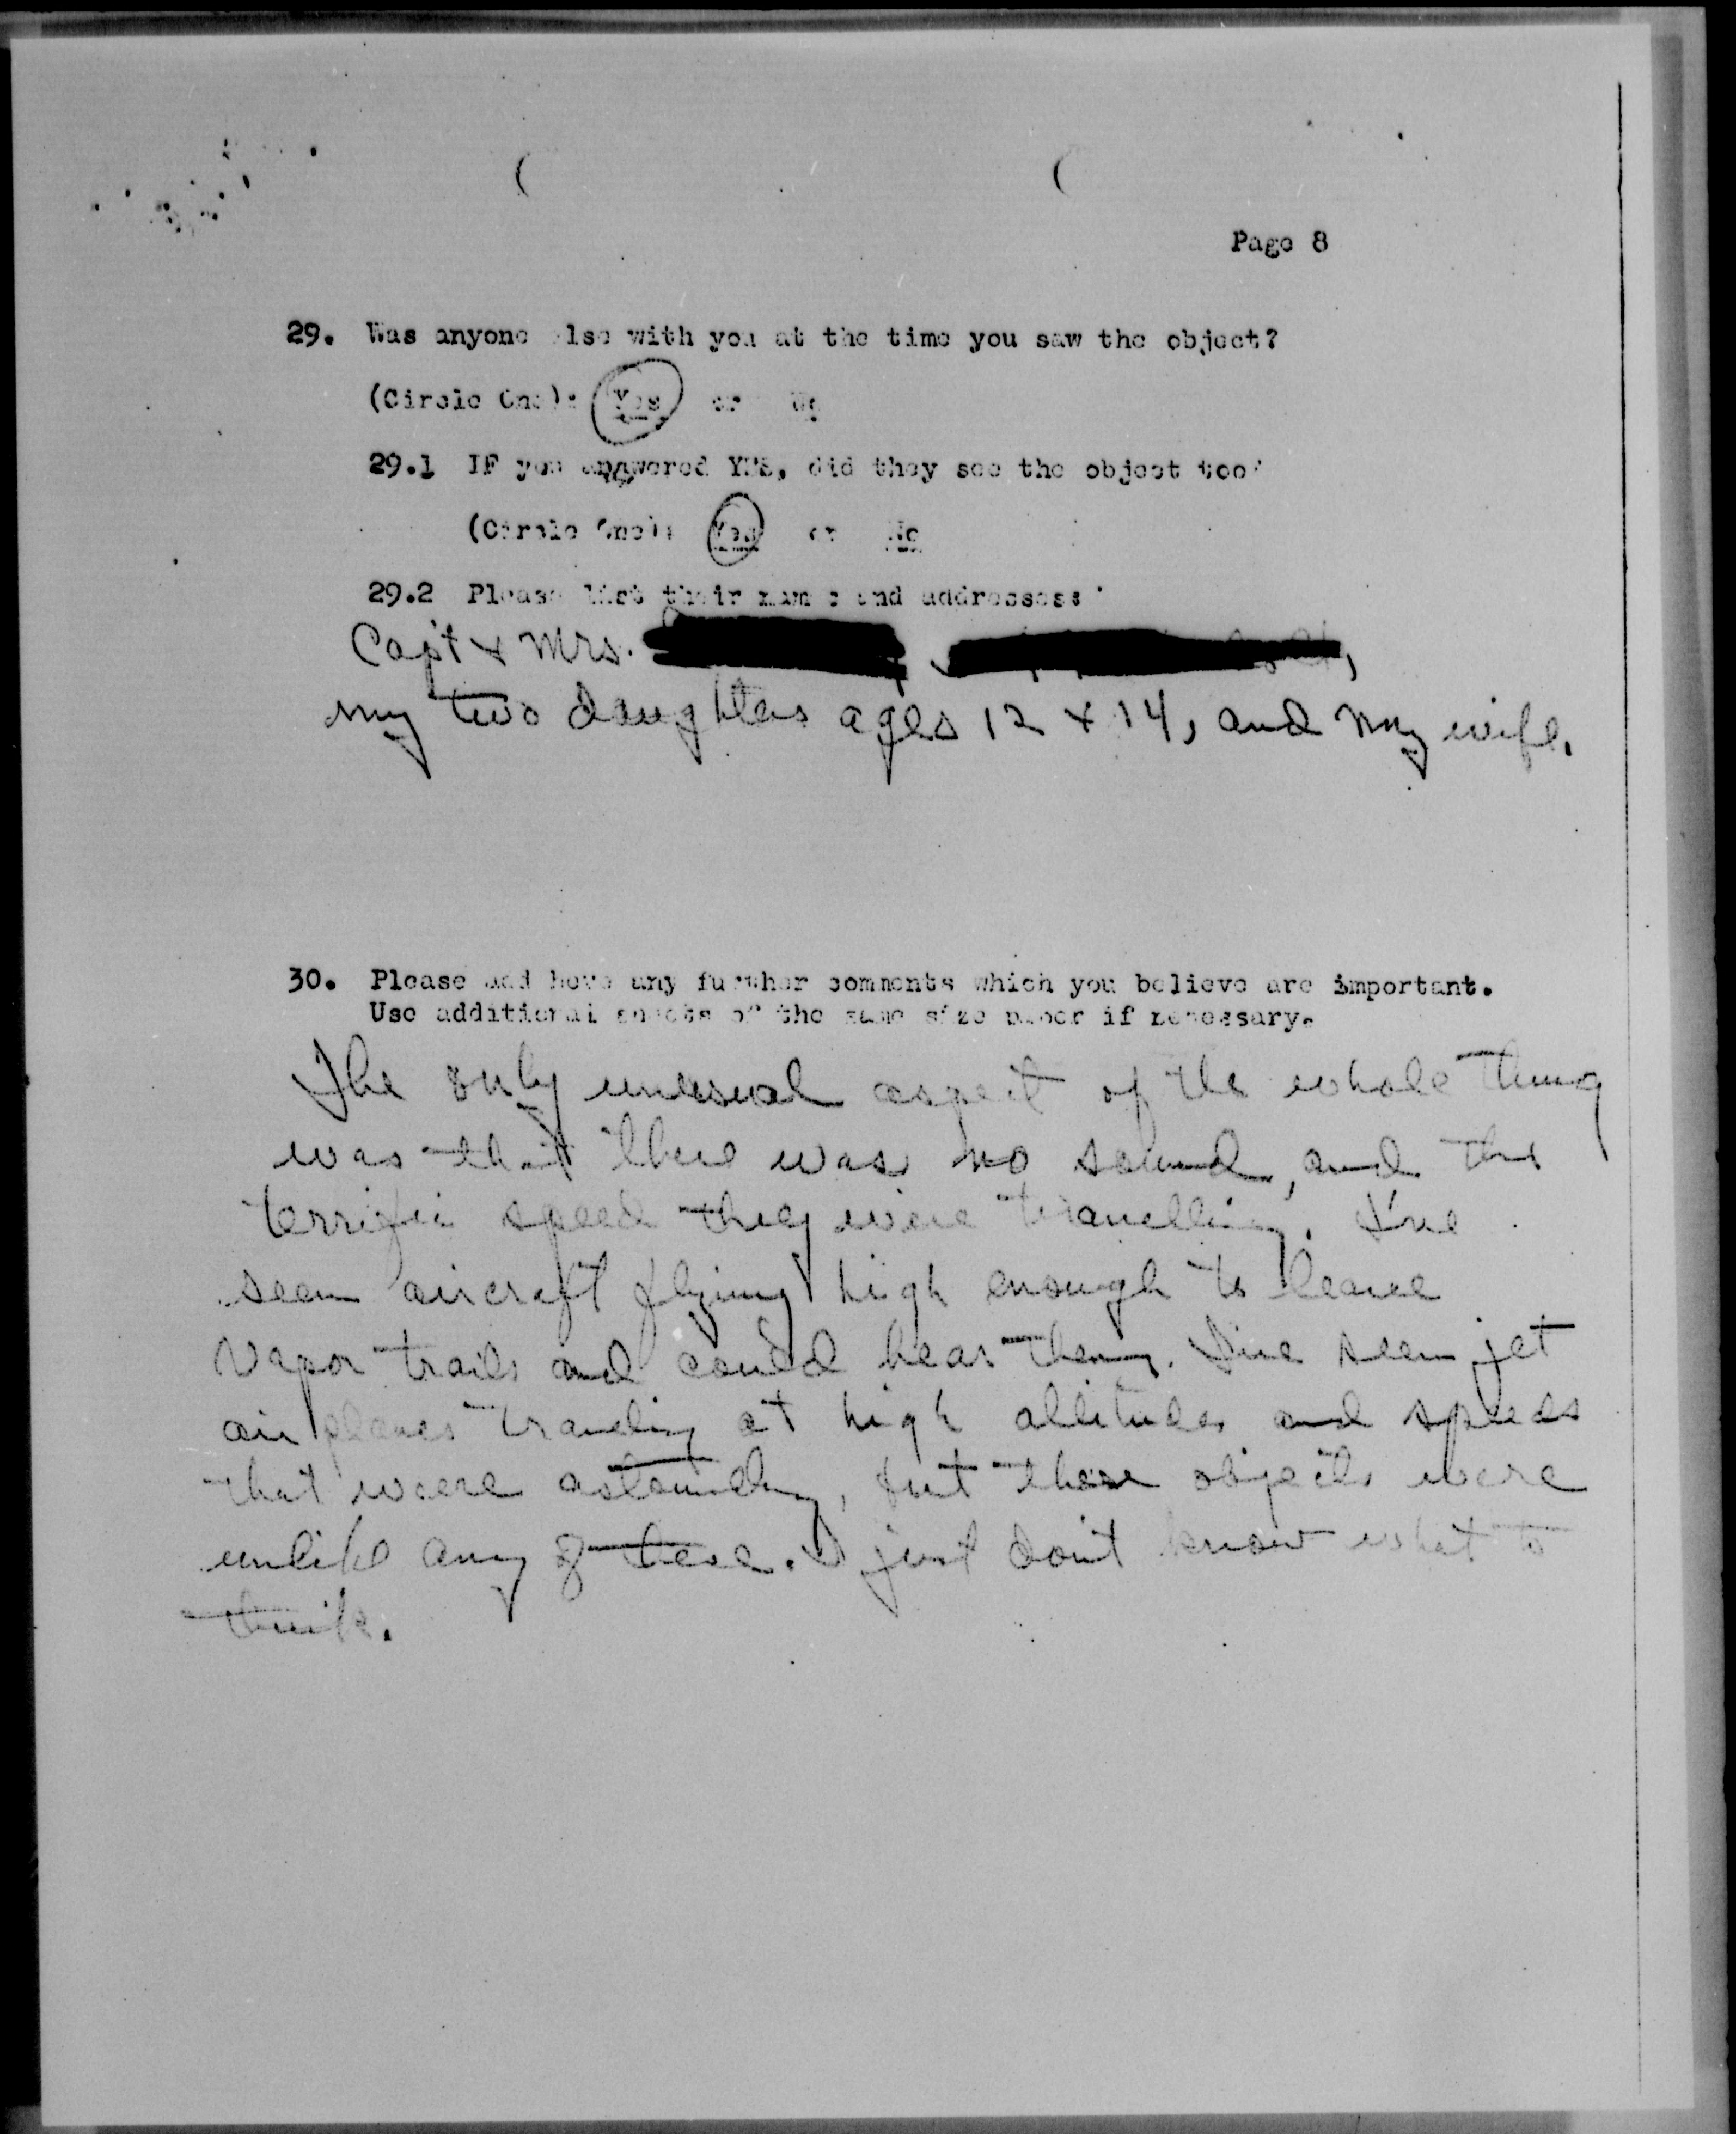 Page 8
29. Was anyone else with you at the time you saw the object?
(Circle One): Yes or No
29.1 IF you answered YES, did they see the object too?
(Circle One): Yes or No
29.2 Please list their names and addresses:
Capt & Mrs.
my two daughters ages 12 & 14, and my wife.
30. Please add here any further comments which you believe are important.
Use additional sheets of the same size paper if necessary.
The only unusual aspect of the whole thing
was that there was no sound, and the
terrific speed they were travelling. I've
seen aircraft flying high enough to leave
vapor trails and could hear them. I've seen jet
air planes traveling at high altitudes and speeds
that were astounding, but these objects were
unlike any of these. I just don't know what to
think.